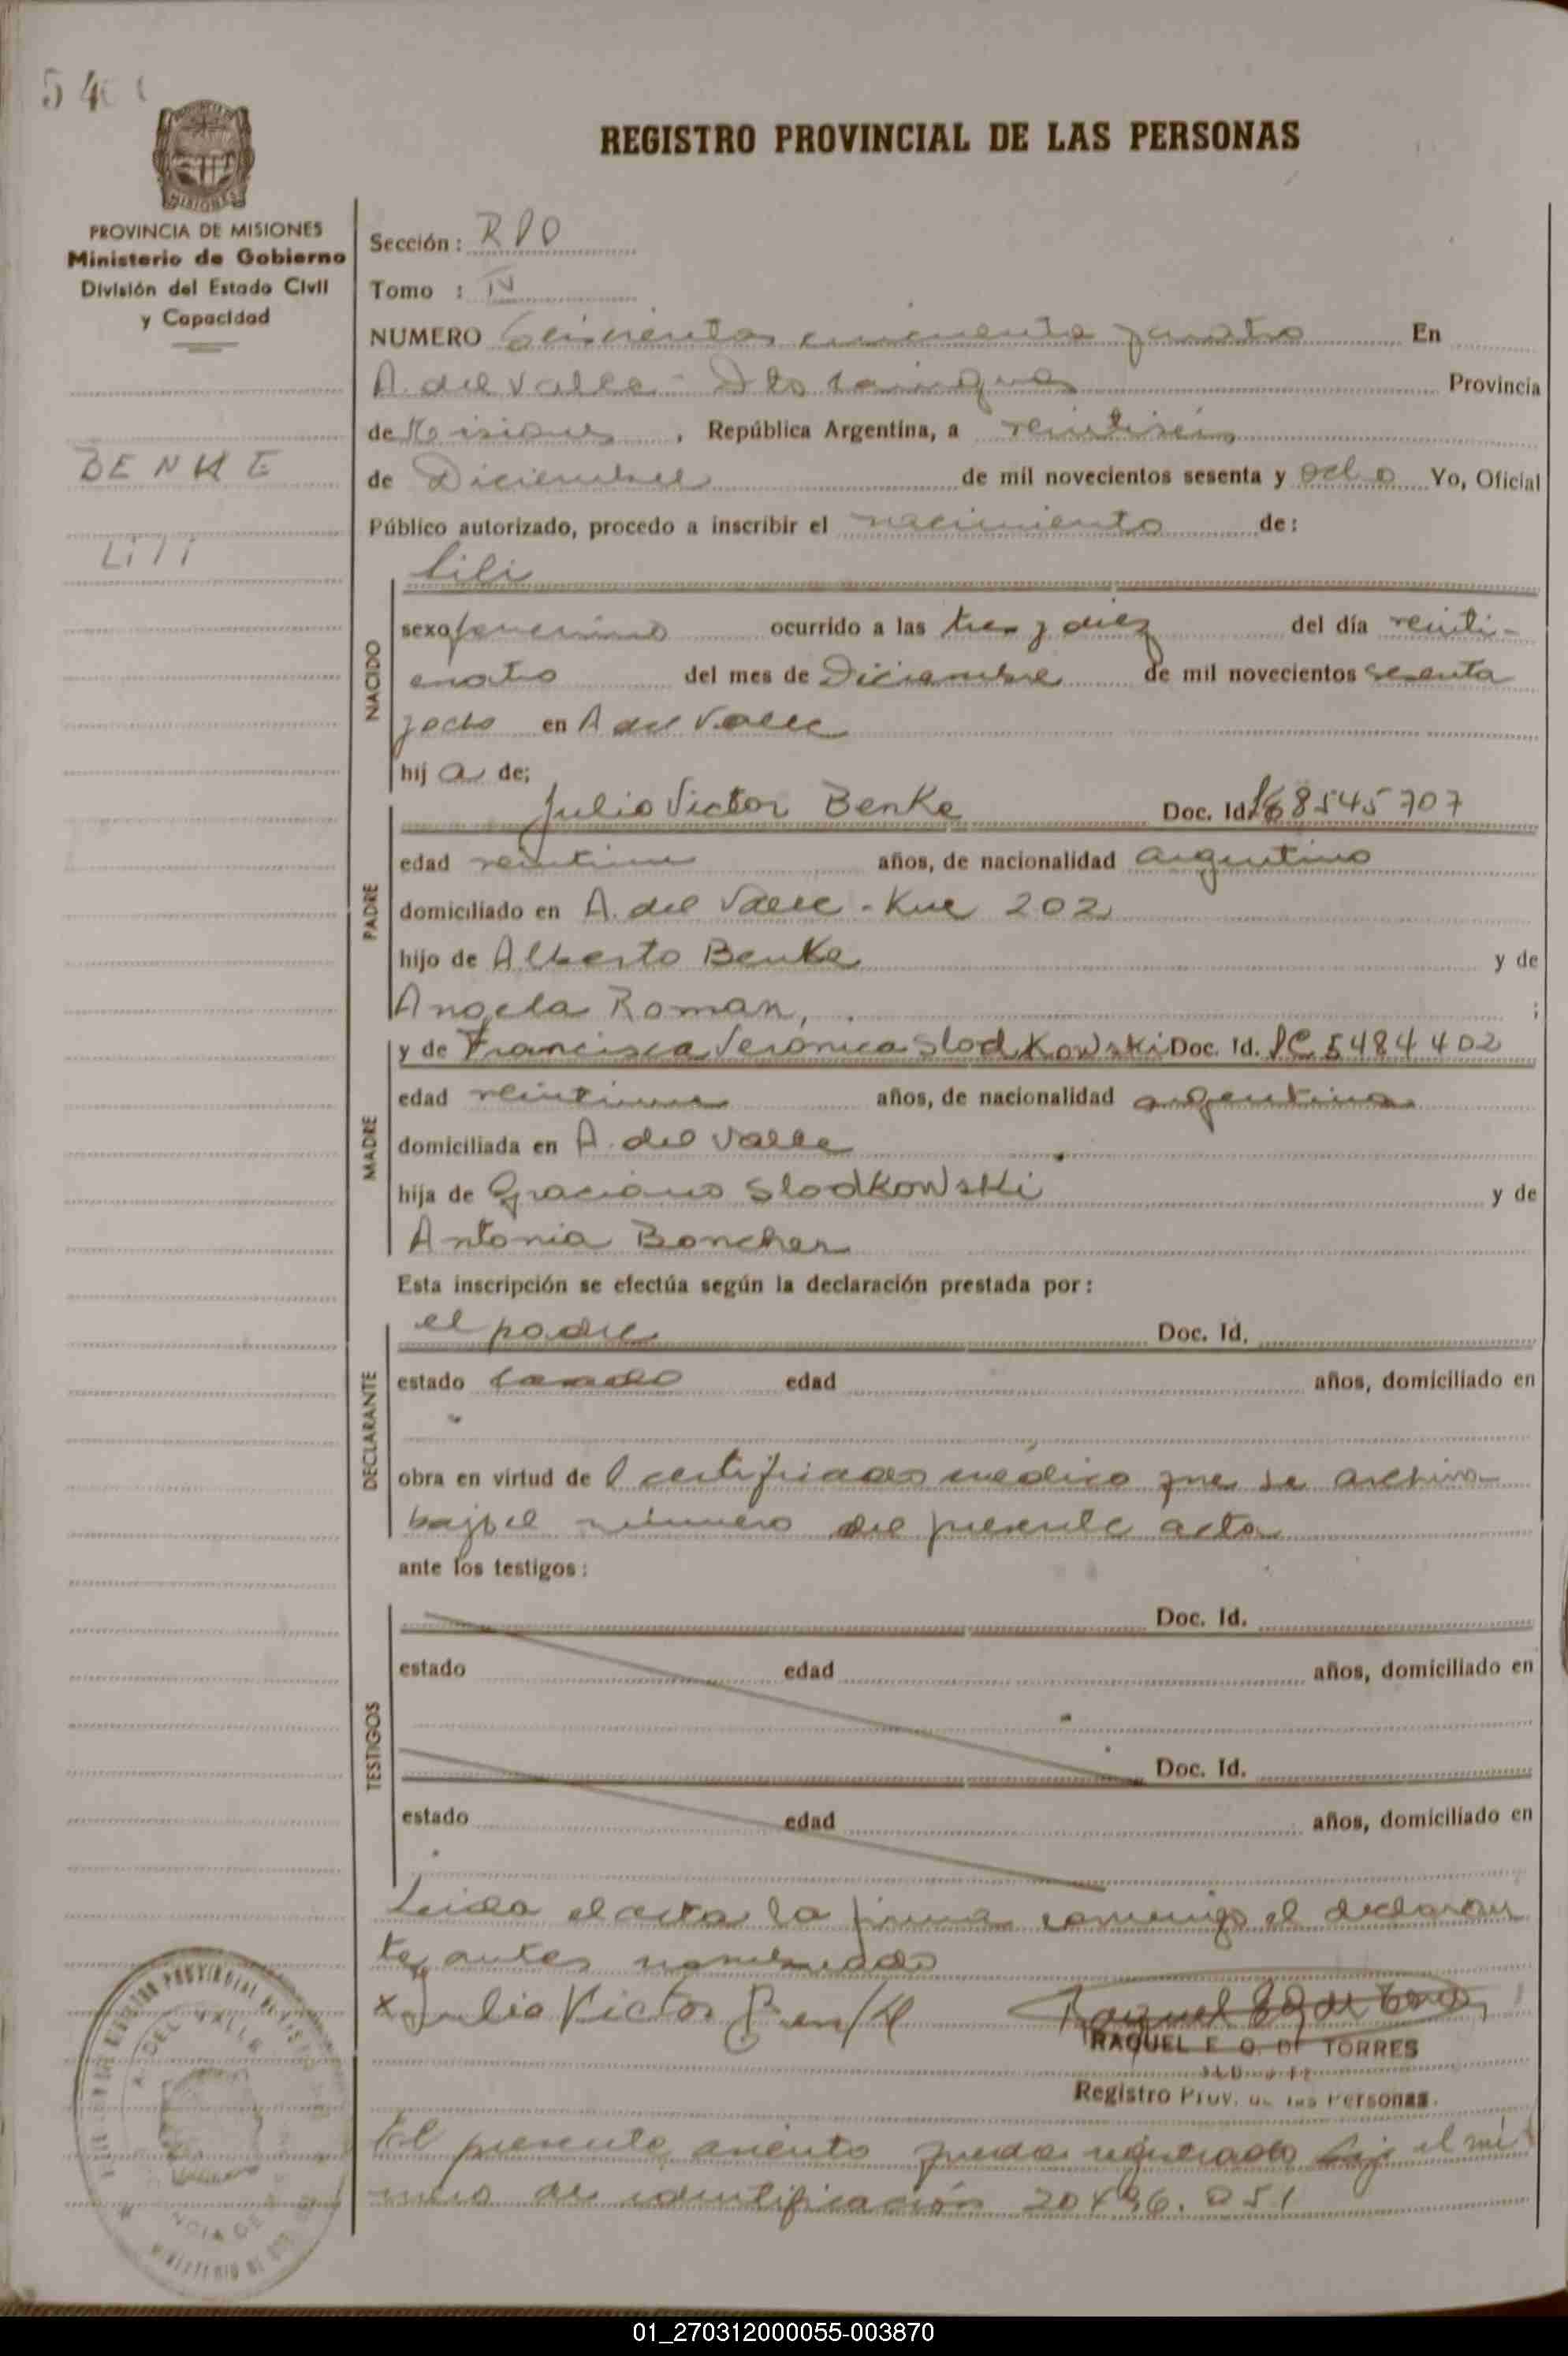 REGISTRO PROVINCIAL DE LAS PERSONAS
MISIONES
PROVINCIA DE MISIONES
Ministerio de Gobierno
División del Estado Civil
y Capacidad
BENKE
Lili
Sección:
Tomo : IV
NUMERO Seiscientos cincuenta y cuatro En
A. del Valle - Dto Cainguas Provincia
de Misiones, República Argentina, a veintiseis
de Diciembre de mil novecientos sesenta y ocho Yo, Oficial
Público autorizado, procedo a inscribir el nacimiento de:
NACIDO
Lili
sexo femenino ocurrido a las tres y diez del día veinti-
cuatro del mes de Diciembre de mil novecientos sesenta
y ocho en A del Valle
hij a de;
PADRE
Julio Victor Benke Doc. Id. 8545707
edad veintiun años, de nacionalidad argentino
domiciliado en A. del Valle - Km 202
hijo de Alberto Benke y de
Angela Roman, ;
MADRE
y de Francisca Veronica Slodkowski Doc. Id. LC 5484402
edad veintiun años, de nacionalidad argentina
domiciliada en A. del Valle
hija de Graciano Slodkowski y de
Antonia Boncher
Esta inscripción se efectúa según la declaración prestada por:
DECLARANTE
el padre Doc. Id.
estado casado edad años, domiciliado en
obra en virtud de l certificado medico que se archiva
bajo el número del presente acta
ante los testigos:
TESTIGOS
Doc. Id.
estado edad años, domiciliado en
Doc. Id.
estado edad años, domiciliado en
Leida el acta la firma conmigo el declaran
te antes nombrado
x Julio Victor Benke
RAQUEL E. O. DE TORRES
Registro Prov. de las Personas.
El presente asiento queda registrado bajo el nú
mero de identificación 20.496.051
01_270312000055-003870